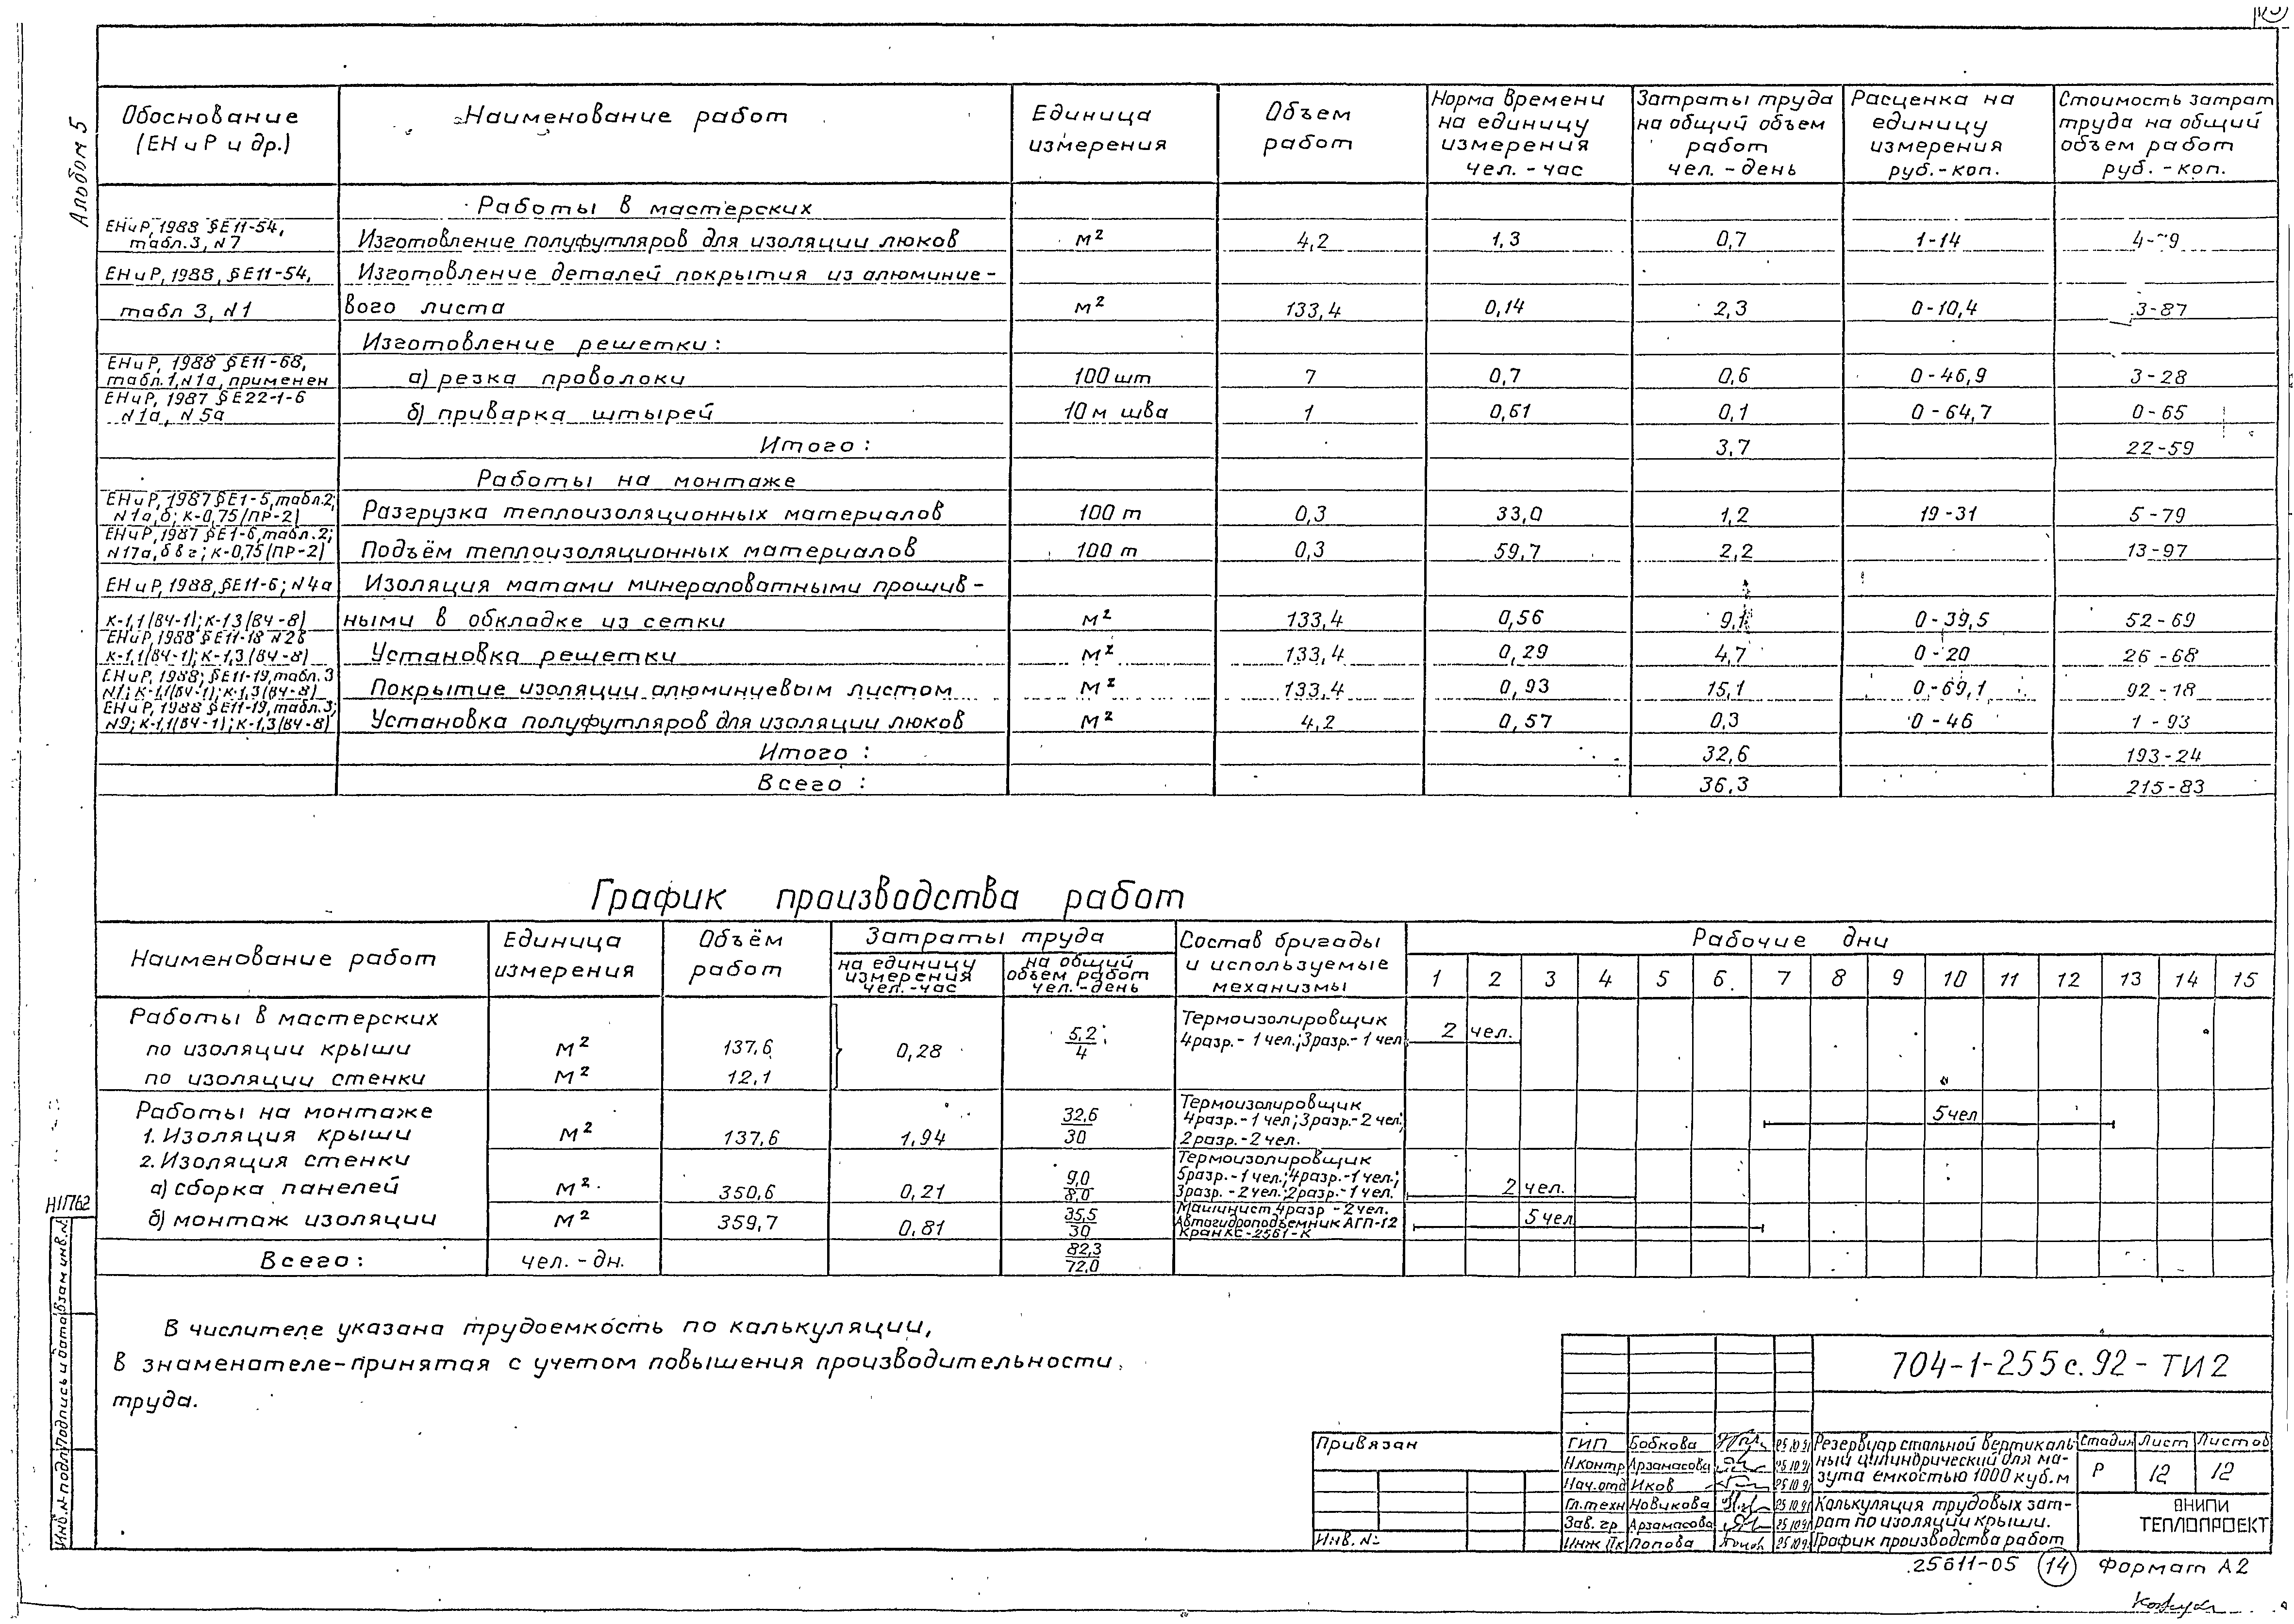 Альбом 5
Обоснование (ЕНиР и др.) Наименование работ Единица измерения Объем работ Норма времени на единицу измерения чел.-час Затраты труда на общий объем работ чел.-день Расценка на единицу измерения руб.-коп. Стоимость затрат труда на общий объем работ руб.-коп.
Работы в мастерских
ЕНиР, 1988 §Е11-54, табл.3, N7 Изготовление полуфутляров для изоляции люков м² 4,2 1,3 0,7 1-14
ЕНиР, 1988, §Е11-54, Изготовление деталей покрытия из алюминие-
табл 3, N1 вого листа м² 133,4 0,14 2,3 0-10,4 3-87
Изготовление решетки:
ЕНиР, 1988 §Е11-68, табл.1, N1а, применен а) резка проволоки 100 шт 7 0,7 0,6 0-46,9 3-28
ЕНиР, 1987 §Е22-1-6 N1а, N5а б) приварка штырей 10 м шва 1 0,61 0,1 0-64,7 0-65
Итого: 3,7 22-59
Работы на монтаже
ЕНиР, 1987 §Е1-5, табл.2; N1а,б; К-0,75 (ПР-2) Разгрузка теплоизоляционных материалов 100 т 0,3 33,0 1,2 19-31 5-79
ЕНиР, 1987 §Е1-6, табл.2; N17а,б в г; К-0,75 (ПР-2) Подъём теплоизоляционных материалов 100 т 0,3 59,7 2,2 13-97
ЕНиР, 1988, §Е11-6; N4а Изоляция матами минераловатными прошив-
К-1,1 (ВЧ-1); К-1,3 (ВЧ-8) ными в обкладке из сетки м² 133,4 0,56 9,1 0-39,5 52-69
ЕНиР, 1988 §Е11-18 N2в К-1,1 (ВЧ-1); К-1,3 (ВЧ-8) Установка решетки м² 133,4 0,29 4,7 0-20 26-68
ЕНиР, 1988; §Е11-19, табл. 3 N1; К-1,1 (ВЧ-1); К-1,3 (ВЧ-8) Покрытие изоляции алюминиевым листом м² 133,4 0,93 15,1 0-69,1 92-18
ЕНиР, 1988 §Е11-19, табл.3; N9; К-1,1 (ВЧ-1); К-1,3 (ВЧ-8) Установка полуфутляров для изоляции люков м² 4,2 0,57 0,3 0-46 1-93
Итого: 32,6 193-24
Всего: 36,3 215-83
График производства работ
Наименование работ Единица измерения Объём работ Затраты труда на единицу измерения чел.-час на общий объем работ чел.-день Состав бригады и используемые механизмы Рабочие дни
1 2 3 4 5 6 7 8 9 10 11 12 13 14 15
Работы в мастерских Термоизолировщик
по изоляции крыши м² 137,6 0,28 5,2/4 4разр.-1 чел.; 3разр.-1 чел. 2 чел.
по изоляции стенки м² 12,1
Работы на монтаже Термоизолировщик
1. Изоляция крыши м² 137,6 1,94 32,6/30 4разр.-1 чел; 3разр.-2 чел; 2разр.-2 чел. 5 чел
2. Изоляция стенки Термоизолировщик
а) сборка панелей м² 350,6 0,21 9,0/8,0 5разр.-1 чел.; 4разр.-1 чел.; 3разр.-2 чел.; 2разр.-1 чел. 2 чел.
б) монтаж изоляции м² 359,7 0,81 35,5/30 Машинист 4разр-2 чел. Автогидроподъемник АГП-12 Кран КС-2561-К 5 чел
Всего: чел.-дн. 82,3/72,0
В числителе указана трудоемкость по калькуляции,
в знаменателе-принятая с учетом повышения производительности
труда.
704-1-255с.92-ТИ2
Привязан
Инв. №
ГИП Бобкова 25.10.91
Н.контр Арзамасова 25.10.91
Нач.отд Иков 25.10.91
Гл.техн Новикова 25.10.91
Зав. гр Арзамасова 25.10.91
Инж Iк Попова 25.10.91
Резервуар стальной вертикаль-
ный цилиндрический для ма-
зута емкостью 1000 куб.м
Стадия Лист Листов
Р 12 12
Калькуляция трудовых зат-
рат по изоляции крыши.
График производства работ
ВНИПИ
ТЕПЛОПРОЕКТ
25611-05 14 Формат А2
Инв.№ подл Подпись и дата Взам инв.№